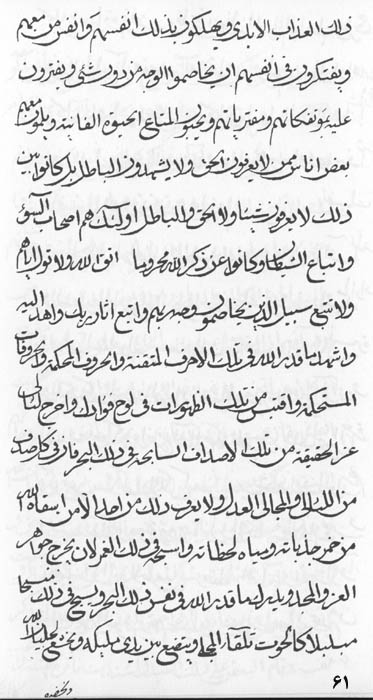 ذلك العذاب الابدي ويهلكون بذلك انفسهم وانفس من معهم
ويفتكرون في انفسهم ان يخاصموا الوجه من دون شئ ويفترون
عليه بمؤتفكاتهم ومفترياتهم ويحبون المتاع الحيوة الفانية معهم
بعض اناس ممن لا يعرفون الحق ولا يشهدون الباطل بل كانوا بين
ذلك لا يعرفون شيئا ولا الحق والباطل اولئك هم اصحاب
واتباع الشيطان وكانوا عن ذكر الله محروما اتق الله ولا
ولا تتبع سبيل الذين يخاصمون وجه ربهم واتبع اثار ربك واهد اليه
واشهد ما قدر الله في تلك الاحرف المتقنة والحروف المحكمة
المستحكمة واقتبس من تلك الظهورات في لوح فؤادك واخرج
عن الحقيقة من تلك الاصداف السابحة في ذلك البحر فان في كل صدف
من اللئالي والمجالي العدل ولا يعرف ذلك من احد الا من سقاه الله
من خمر جذباته ومياه لحظاته واسبح في ذلك ليخرج جواهر
العز والمجد ويدرك ما قدر الله في نفس ذلك البحر ويسبح في ذلك
كالحوت تلقاء ويتضع بين يدي مليكه ويخضع
٦١